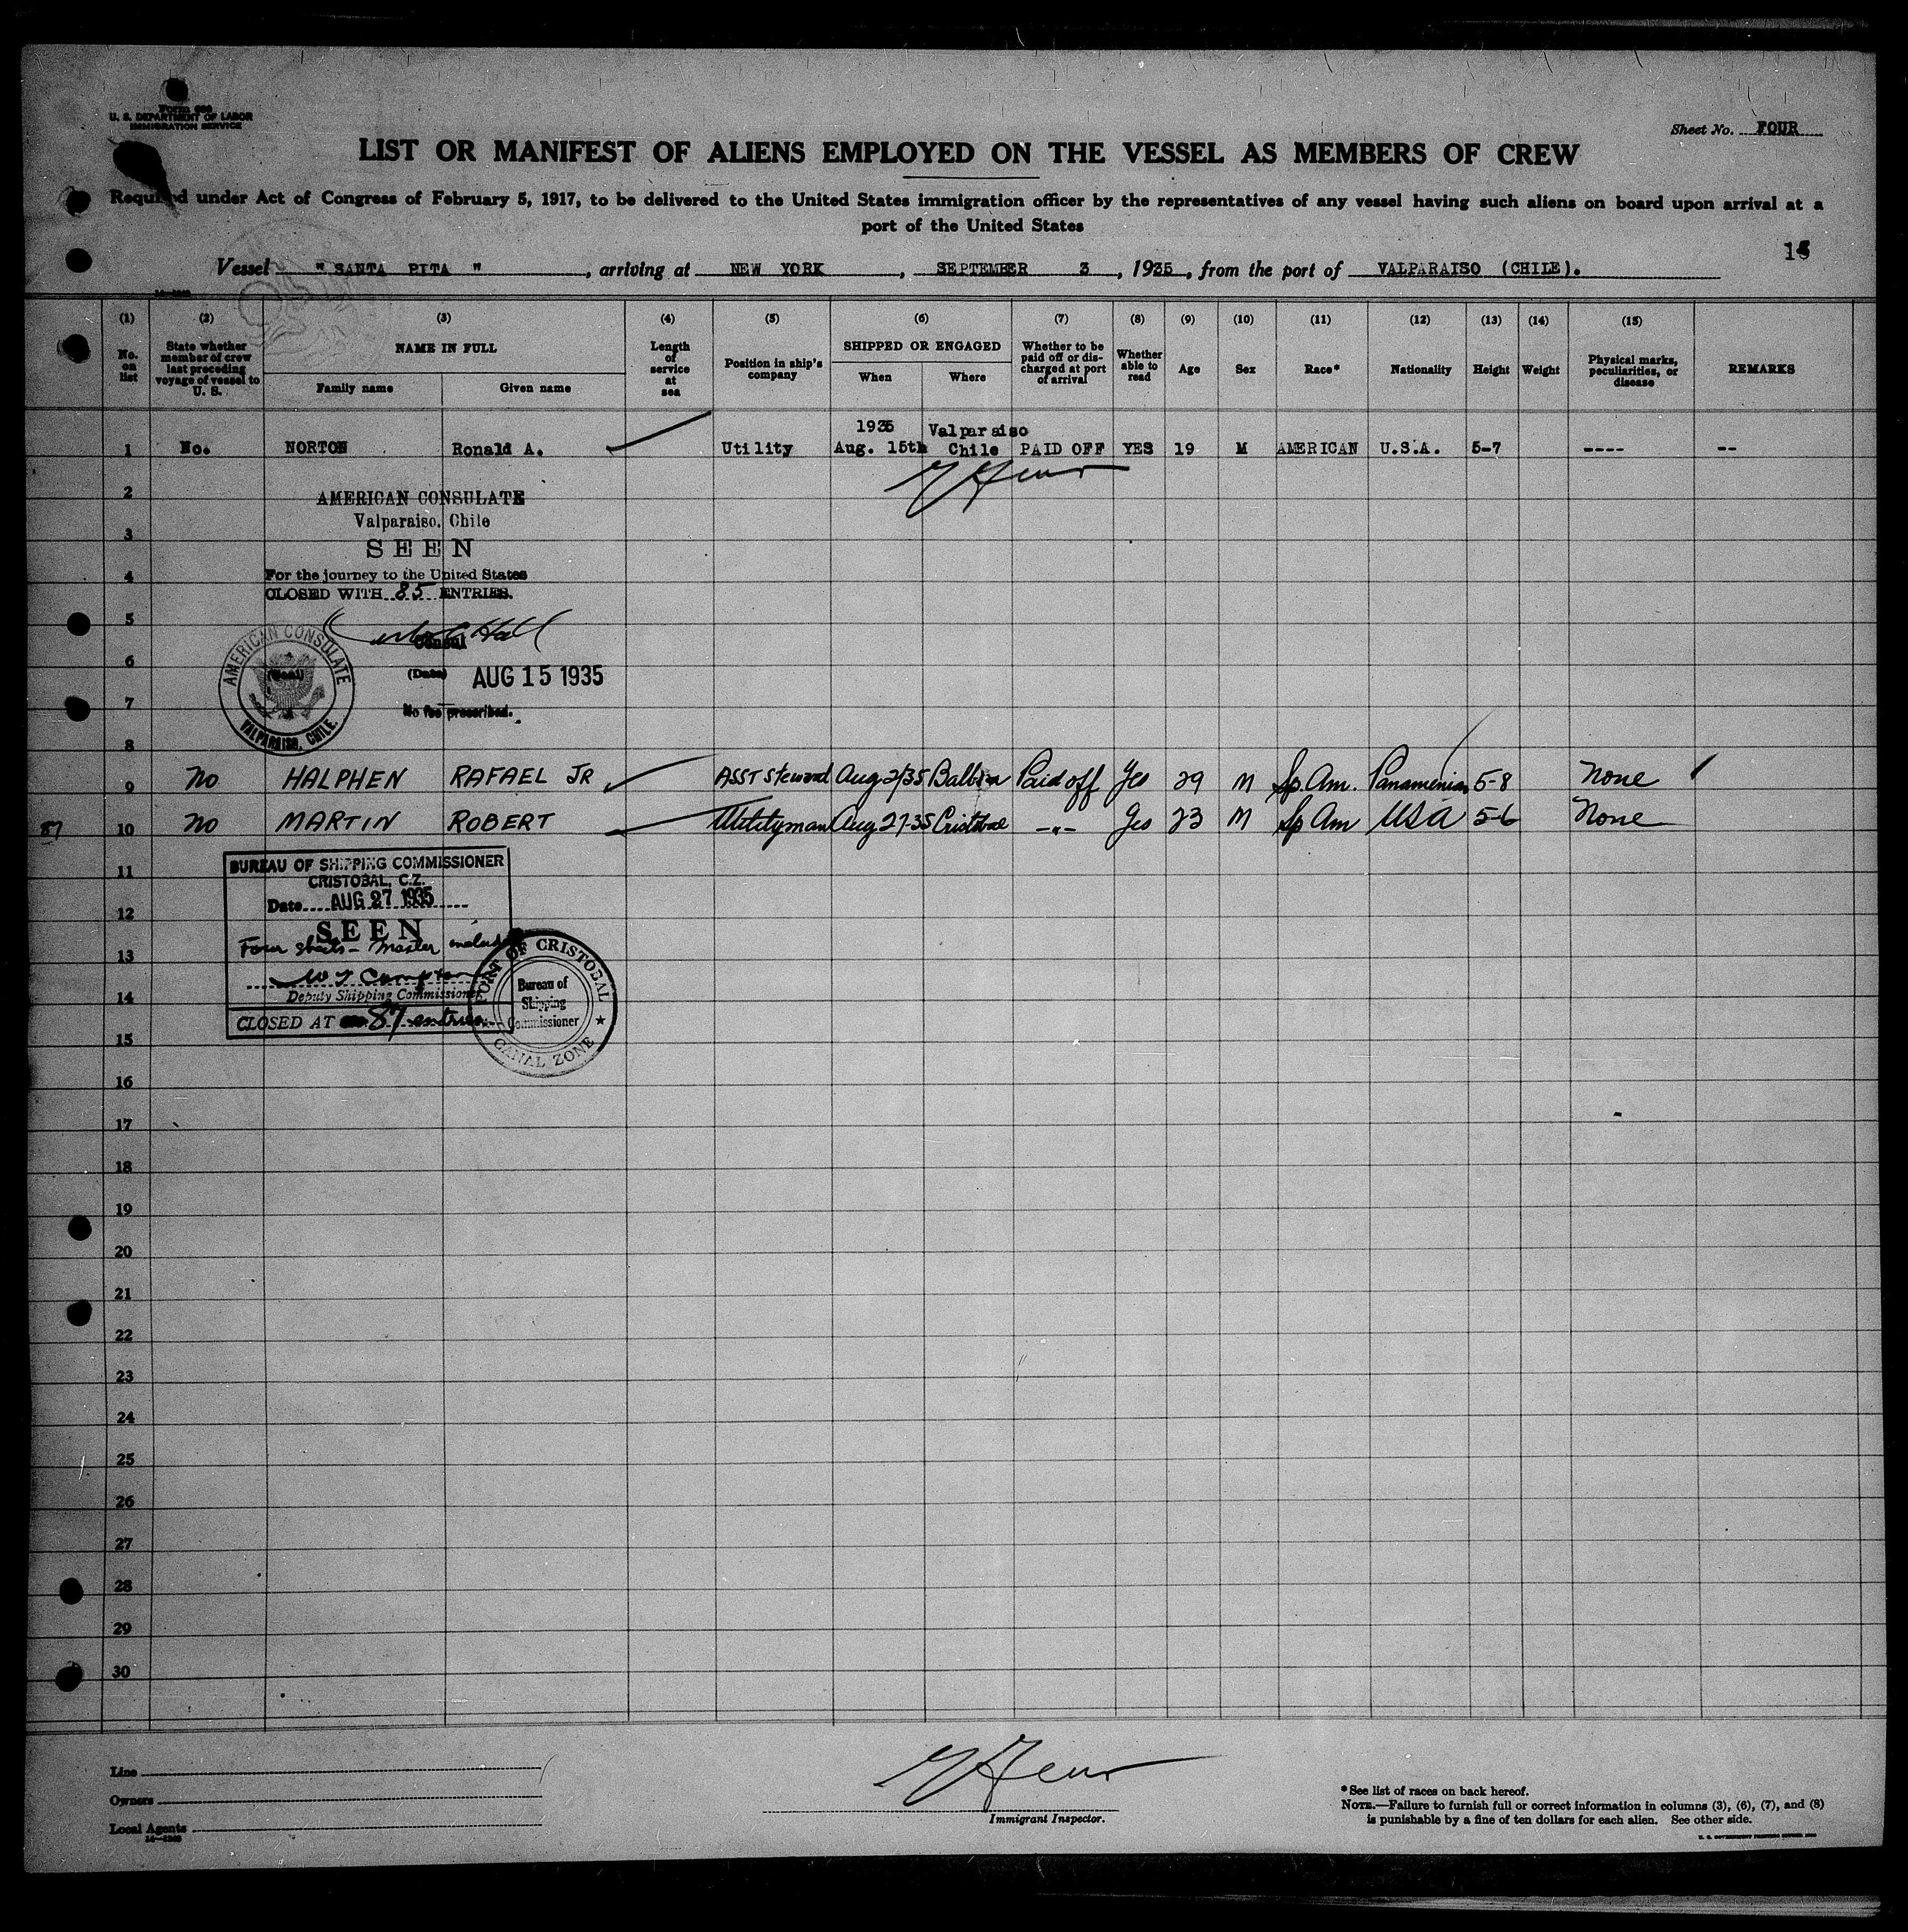 Form 680
U. S. DEPARTMENT OF LABOR
IMMIGRATION SERVICE
Sheet No. FOUR
LIST OR MANIFEST OF ALIENS EMPLOYED ON THE VESSEL AS MEMBERS OF CREW
Required under Act of Congress of February 5, 1917, to be delivered to the United States immigration officer by the representatives of any vessel having such aliens on board upon arrival at a
port of the United States
Vessel " SANTA RITA " , arriving at NEW YORK , SEPTEMBER 3 , 1935 , from the port of VALPARAISO (CHILE).
(1) (2) (3) (4) (5) (6) (7) (8) (9) (10) (11) (12) (13) (14) (15)
No. on list State whether member of crew last preceding voyage of vessel to U. S. NAME IN FULL Length of service at sea Position in ship's company SHIPPED OR ENGAGED Whether to be paid off or discharged at port of arrival Whether able to read Age Sex Race* Nationality Height Weight Physical marks, peculiarities, or disease REMARKS
Family name Given name When Where
1935 Valparaiso
1 No. NORTON Ronald A. Utility Aug. 15th Chile PAID OFF YES 19 M AMERICAN U.S.A. 5-7 ---- --
2
AMERICAN CONSULATE
Valparaiso, Chile
3
SEEN
4
For the journey to the United States
CLOSED WITH 85 ENTRIES.
5
Hall
Consul
6
AMERICAN CONSULATE
VALPARAISO, CHILE.
(Seal)
(Date) AUG 15 1935
7
No fee prescribed.
8
9 No HALPHEN RAFAEL JR Asst Steward Balboa Paid off Yes 29 M Sp. Am. Panamenian 5-8 None
87 10 No MARTIN ROBERT Utilityman Aug 27-35 Cristobal -"- Yes 23 M Sp Am USA 5-6 None
11
BUREAU OF SHIPPING COMMISSIONER
CRISTOBAL, C.Z.
Date AUG 27 1935
12
SEEN
Four sheets - Master included
13
W J Compton
14
Deputy Shipping Commissioner
CLOSED AT 87 entries
PORT OF CRISTOBAL
Bureau of
Shipping
Commissioner
CANAL ZONE
15
16
17
18
19
20
21
22
23
24
25
26
27
28
29
30
Line
Owners
Local Agents
Immigrant Inspector.
*See list of races on back hereof.
NOTE.—Failure to furnish full or correct information in columns (3), (6), (7), and (8)
is punishable by a fine of ten dollars for each alien. See other side.